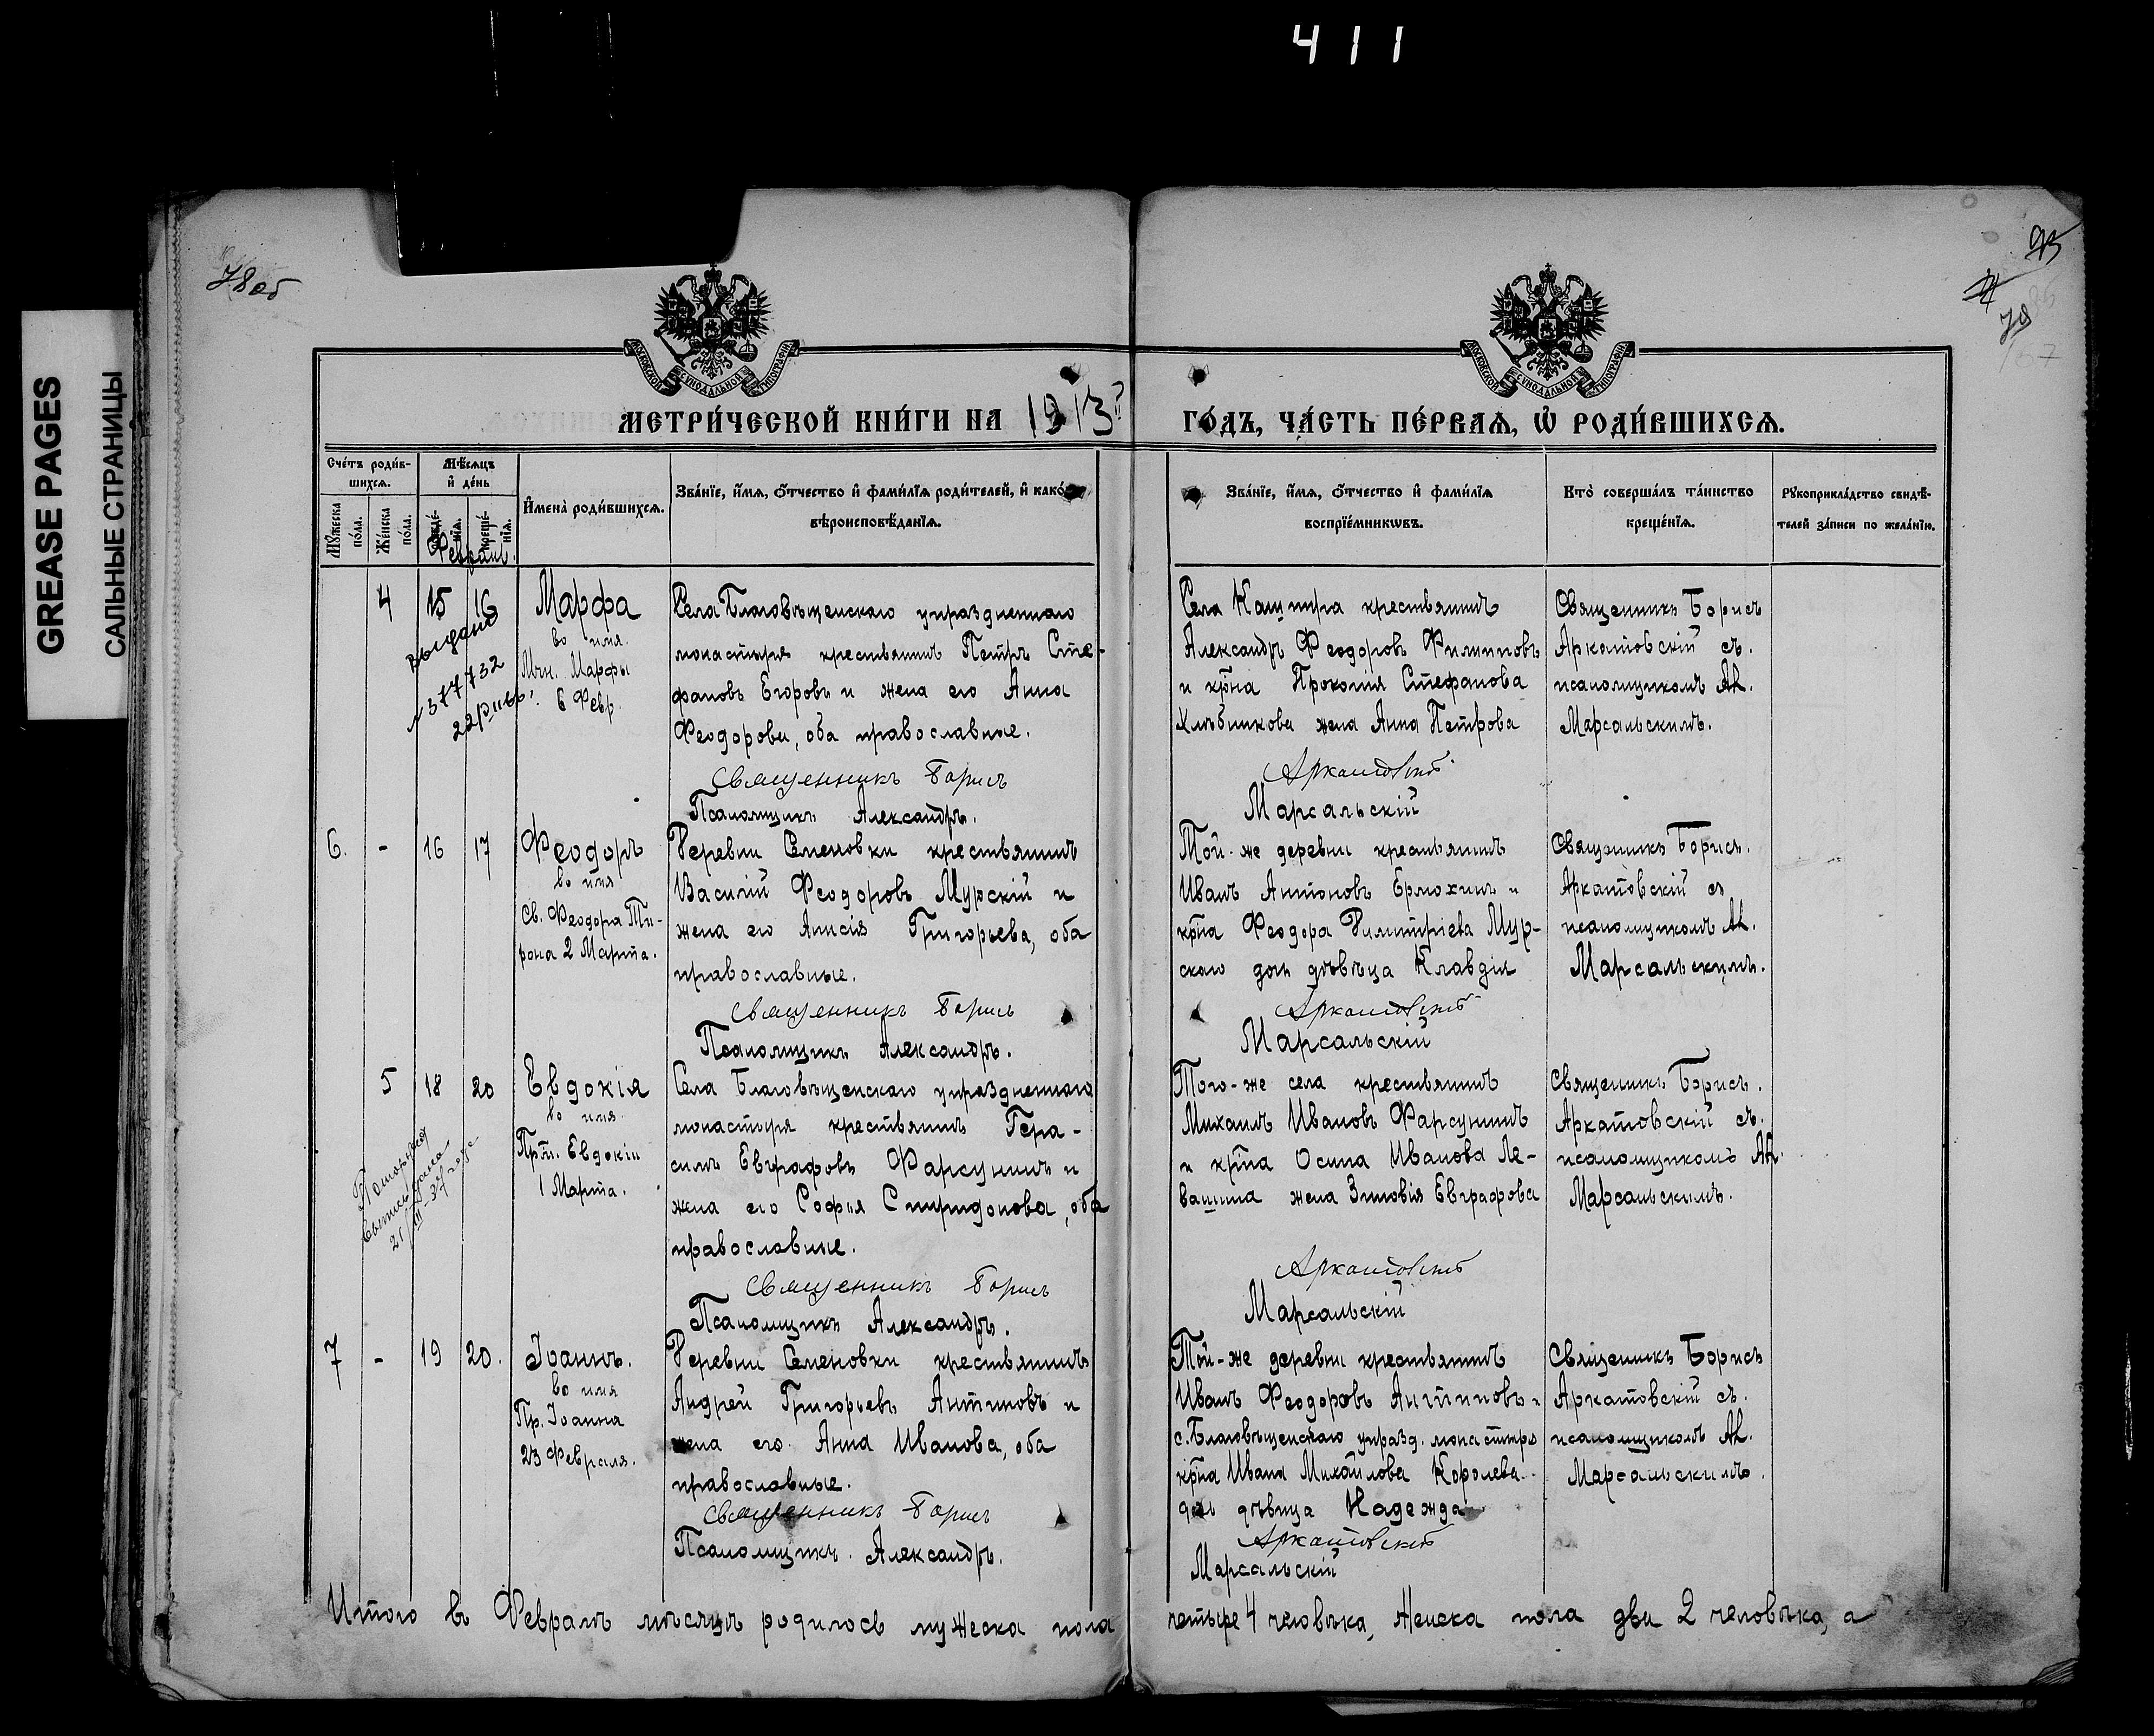 411
GREASE PAGES
САЛЬНЫЕ СТРАНИЦЫ
78об
79
МОСКОВСКОЙ СѴНОДАЛЬНОЙ ТИПОГРАФІИ
МОСКОВСКОЙ СѴНОДАЛЬНОЙ ТИПОГРАФІИ
МЕТРИ́ЧЕСКОЙ КНИ́ГИ НА 1913
ГО́ДЪ, ЧА́СТЬ ПЕ́РВАѦ, Ѡ РОДИ́ВШИХСѦ.
Сче́тъ роди́в-
шихсѧ.
Мѣ́сѧцъ
и де́нь
Мꙋ́жеска по́ла.
Же́нска по́ла.
рожде́-нїѧ.
креще́-нїѧ.
Имена̀ роди́вшихсѧ.
Зва́нїе, и́мѧ, о́тчество и фами́лїѧ роди́телей, и како́й
вѣроисповѣ́данїѧ.
Зва́нїе, и́мѧ, о́тчество и фами́лїѧ
воспрїе́мникѡвъ.
Кто̀ соверша́лъ та́инство
креще́нїѧ.
Рꙋкоприкла́дство свидѣ́-
телей за́писи по жела́нїю.
Февраль.
4 15 16
Марфа
во имя
Мчн. Марфы
6 Февр.
выдано
№ 377732
Села Благовѣщенскаго упраздненнаго
монастыря крестьянинъ Петръ Сте-
фановъ Егоровъ и жена его Анна
Феодорова, оба православные.
Священникъ Борисъ
Псаломщикъ Александръ.
Села Кашпира крестьянинъ
Александръ Феодоровъ Филиповъ
и кр̃на Прокопія Стефанова
Хлѣбникова жена Анна Петрова
Аркатовскій
Марсальскій
Священникъ Борисъ
Аркатовскій съ
псаломщикомъ Ал.
Марсальскимъ.
6. - 16 17
Феодоръ
во имя
Св. Феодора Ти-
рона 2 Марта.
Деревни Семеновки крестьянинъ
Василій Феодоровъ Мурскій и
жена его Анисія Григорьева, оба
православные.
Священникъ Борисъ
Псаломщикъ Александръ.
Той-же деревни крестьянинъ
Иванъ Антоновъ Ермохинъ и
кр̃на Феодора Димитріева Мур-
скаго дочь дѣвица Клавдія
Аркатовскій
Марсальскій
Священникъ Борисъ.
Аркатовскій съ
псаломщикомъ Ал.
Марсальскимъ.
5 18 20
Евдокія
во имя
Прп̃. Евдокіи
1 Марта.
Села Благовѣщенскаго упраздненнаго
монастыря крестьянинъ Гера-
симъ Евграфовъ Фарсунинъ и
жена его Софья Спиридонова, оба
православные.
Священникъ Борисъ
Псаломщикъ Александръ.
Того-же села крестьянинъ
Михаилъ Ивановъ Фарсунинъ
и кр̃на Осипа Иванова Ле-
вашина жена Зиновія Евграфова
Аркатовскій
Марсальскій
Священникъ Борисъ.
Аркатовскій съ.
псаломщикомъ Ал.
Марсальскимъ.
7 - 19 20.
Іоаннъ.
во имя
Пр. Іоанна
23 Февраля.
Деревни Семеновки крестьянинъ
Андрей Григорьевъ Антиповъ и
жена его Анна Иванова, оба
православные.
Священникъ Борисъ
Псаломщикъ. Александръ.
Той-же деревни крестьянинъ
Иванъ Феодоровъ Антиповъ и
с. Благовѣщенскаго упразд. монастыря
кр̃на Ивана Михайлова Королева
дочь дѣвица Надежда
Аркатовскій
Марсальскій
Священникъ Борисъ
Аркатовскій съ.
псаломщикомъ Ал.
Марсальскимъ.
Итого въ Февралѣ мѣсяцѣ родилось мужеска пола четыре 4 человѣка, женска пола два 2 человѣка, а